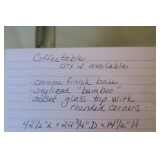 Coffeetable
QTY 2 available
- crome finish base
- stylized "bamboo"
- inset glass top with
rounded corners
42½"L x 22¾"D x 14½"H